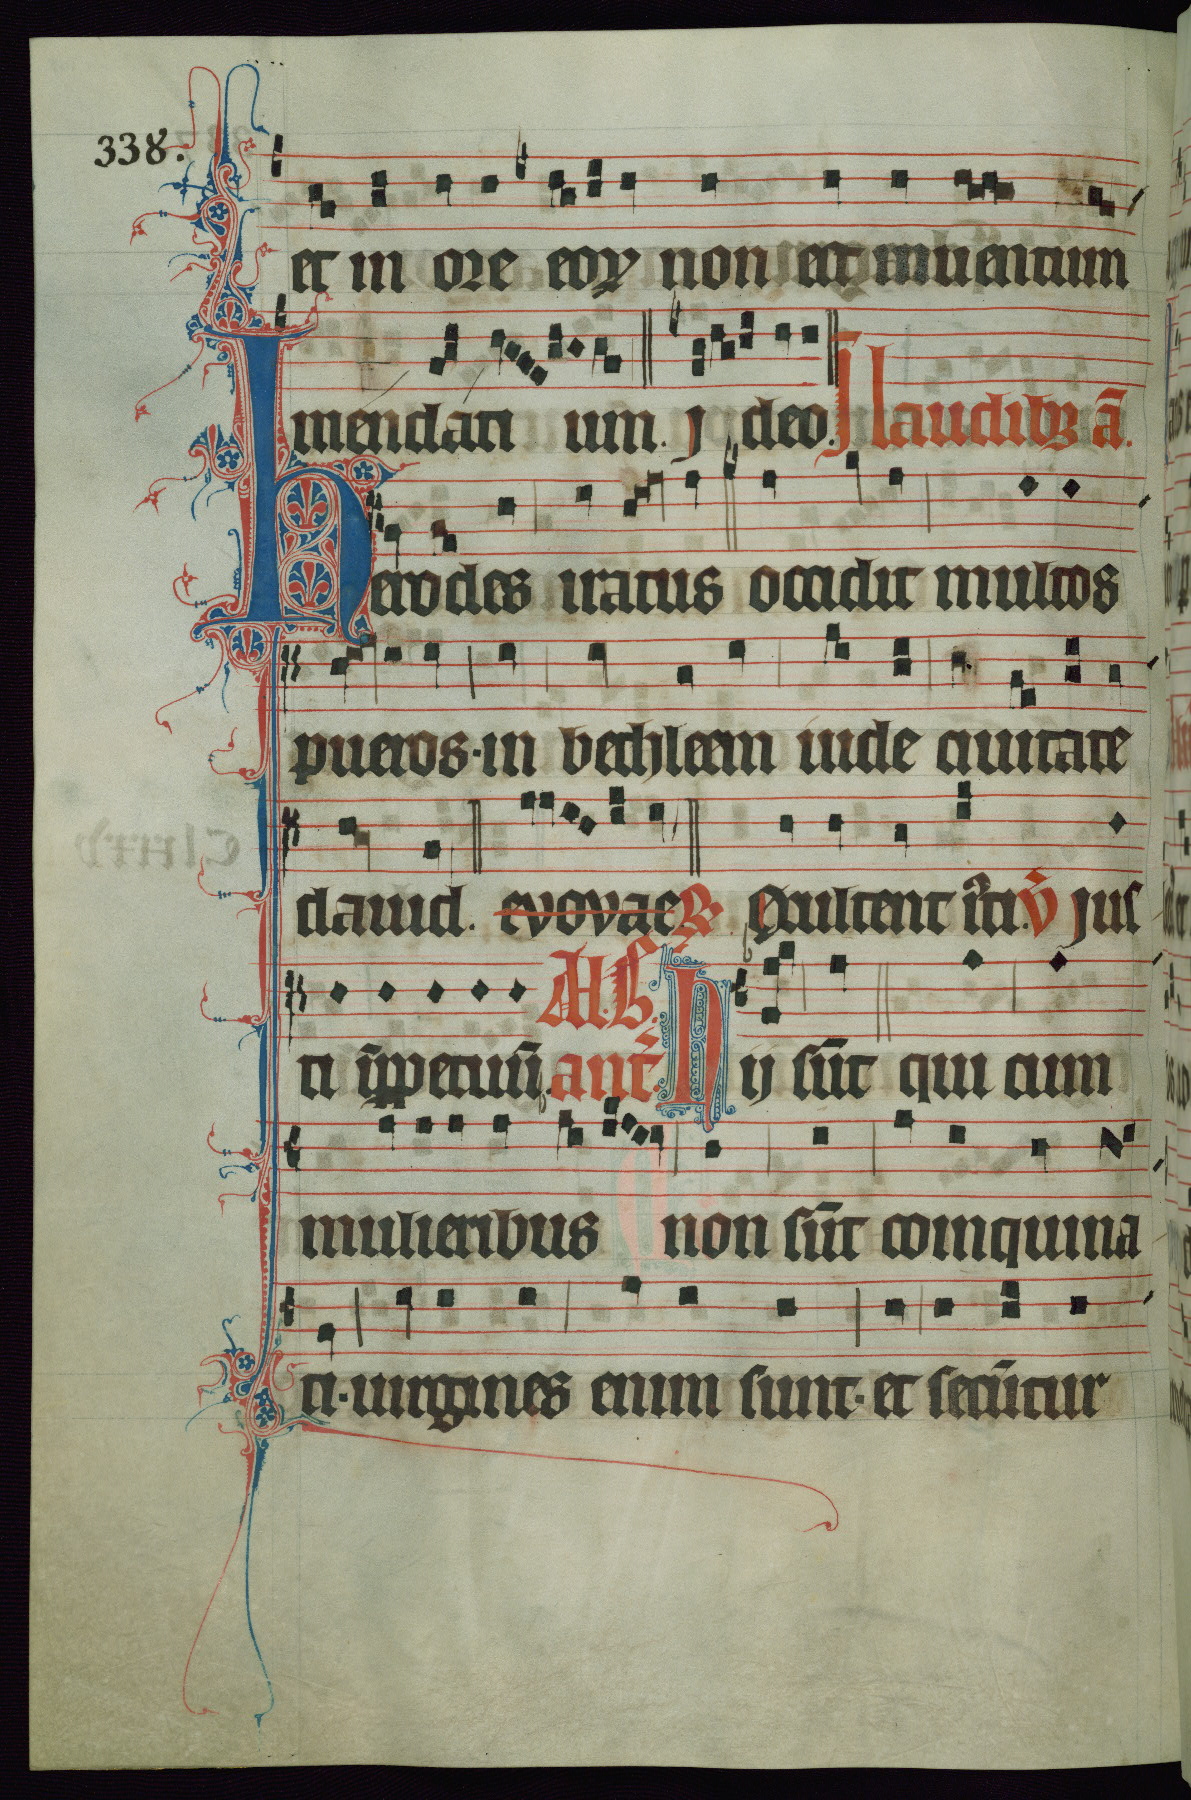 338.
et in ore eorꝝ non est inuentum
mendati um. j deo. J laudibꝫ ã.
herodes iratus occidit multos
pueros·in bethleem iude ciuitate
dauid. evovae ℟ Exultent iusti. v̄ Jus
ti īp̲petuū. ant̄. Hij sūt qui cum
mulieribus non sūt coinquina
ti·uirgines enim sunt·et secūtur